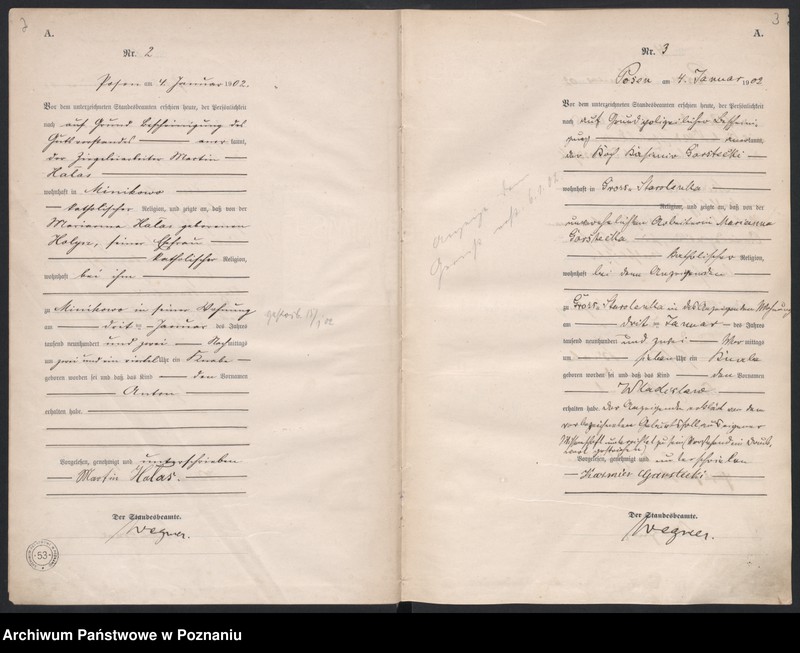 A.
Nr. 2
Posen am 4. Januar 1902.
Vor dem unterzeichneten Standesbeamten erschien heute, der Persönlichkeit
nach auf Grund Bescheinigung des
Gutsvorstandes kannt,
der Ziegeleiarbeiter Martin
Hałas
wohnhaft in Minikowo
katholischer Religion, und zeigte an, daß von der
Marianna Hałas geborenen
seiner Ehefrau
katholischer Religion,
wohnhaft bei ihm
zu Minikowo in seiner Wohnung
am dritten Januar des Jahres
tausend neunhundert und zwei Nachmittags
um zwei und ein viertel Uhr ein Knabe
geboren worden sei und daß das Kind den Vornamen
Anton
erhalten habe.
Vorgelesen, genehmigt und unterschrieben
Martin Hałas.
Der Standesbeamte.
Wegner.
53
3
A.
Nr. 3
Posen am 4. Januar 1902
Vor dem unterzeichneten Standesbeamten erschien heute, der Persönlichkeit
nach auf Grund polizeilicher Bescheini-
gung kannt,
der
wohnhaft in Gross-Starolenka
Religion, und zeigte an, daß von der
unverehelichten Arbeiterin Marianna
Garstecka
katholischer Religion,
wohnhaft bei dem Anzeigenden
zu Gross-Starolenka in des Anzeigenden Wohnung
am dritten Januar des Jahres
tausend neunhundert und zwei Vormittags
um sieben Uhr ein Knabe
geboren worden sei und daß das Kind den Vornamen
Wladislaw
erhalten habe. Der Anzeigende erklärt von dem
vorbezeichneten Geburtsfall aus eigener
Wissenschaft unterrichtet zu sein.
Vorgelesen, genehmigt und unterschrieben
Kazmier Garstecki
Der Standesbeamte.
Wegner.
Archiwum Państwowe w Poznaniu